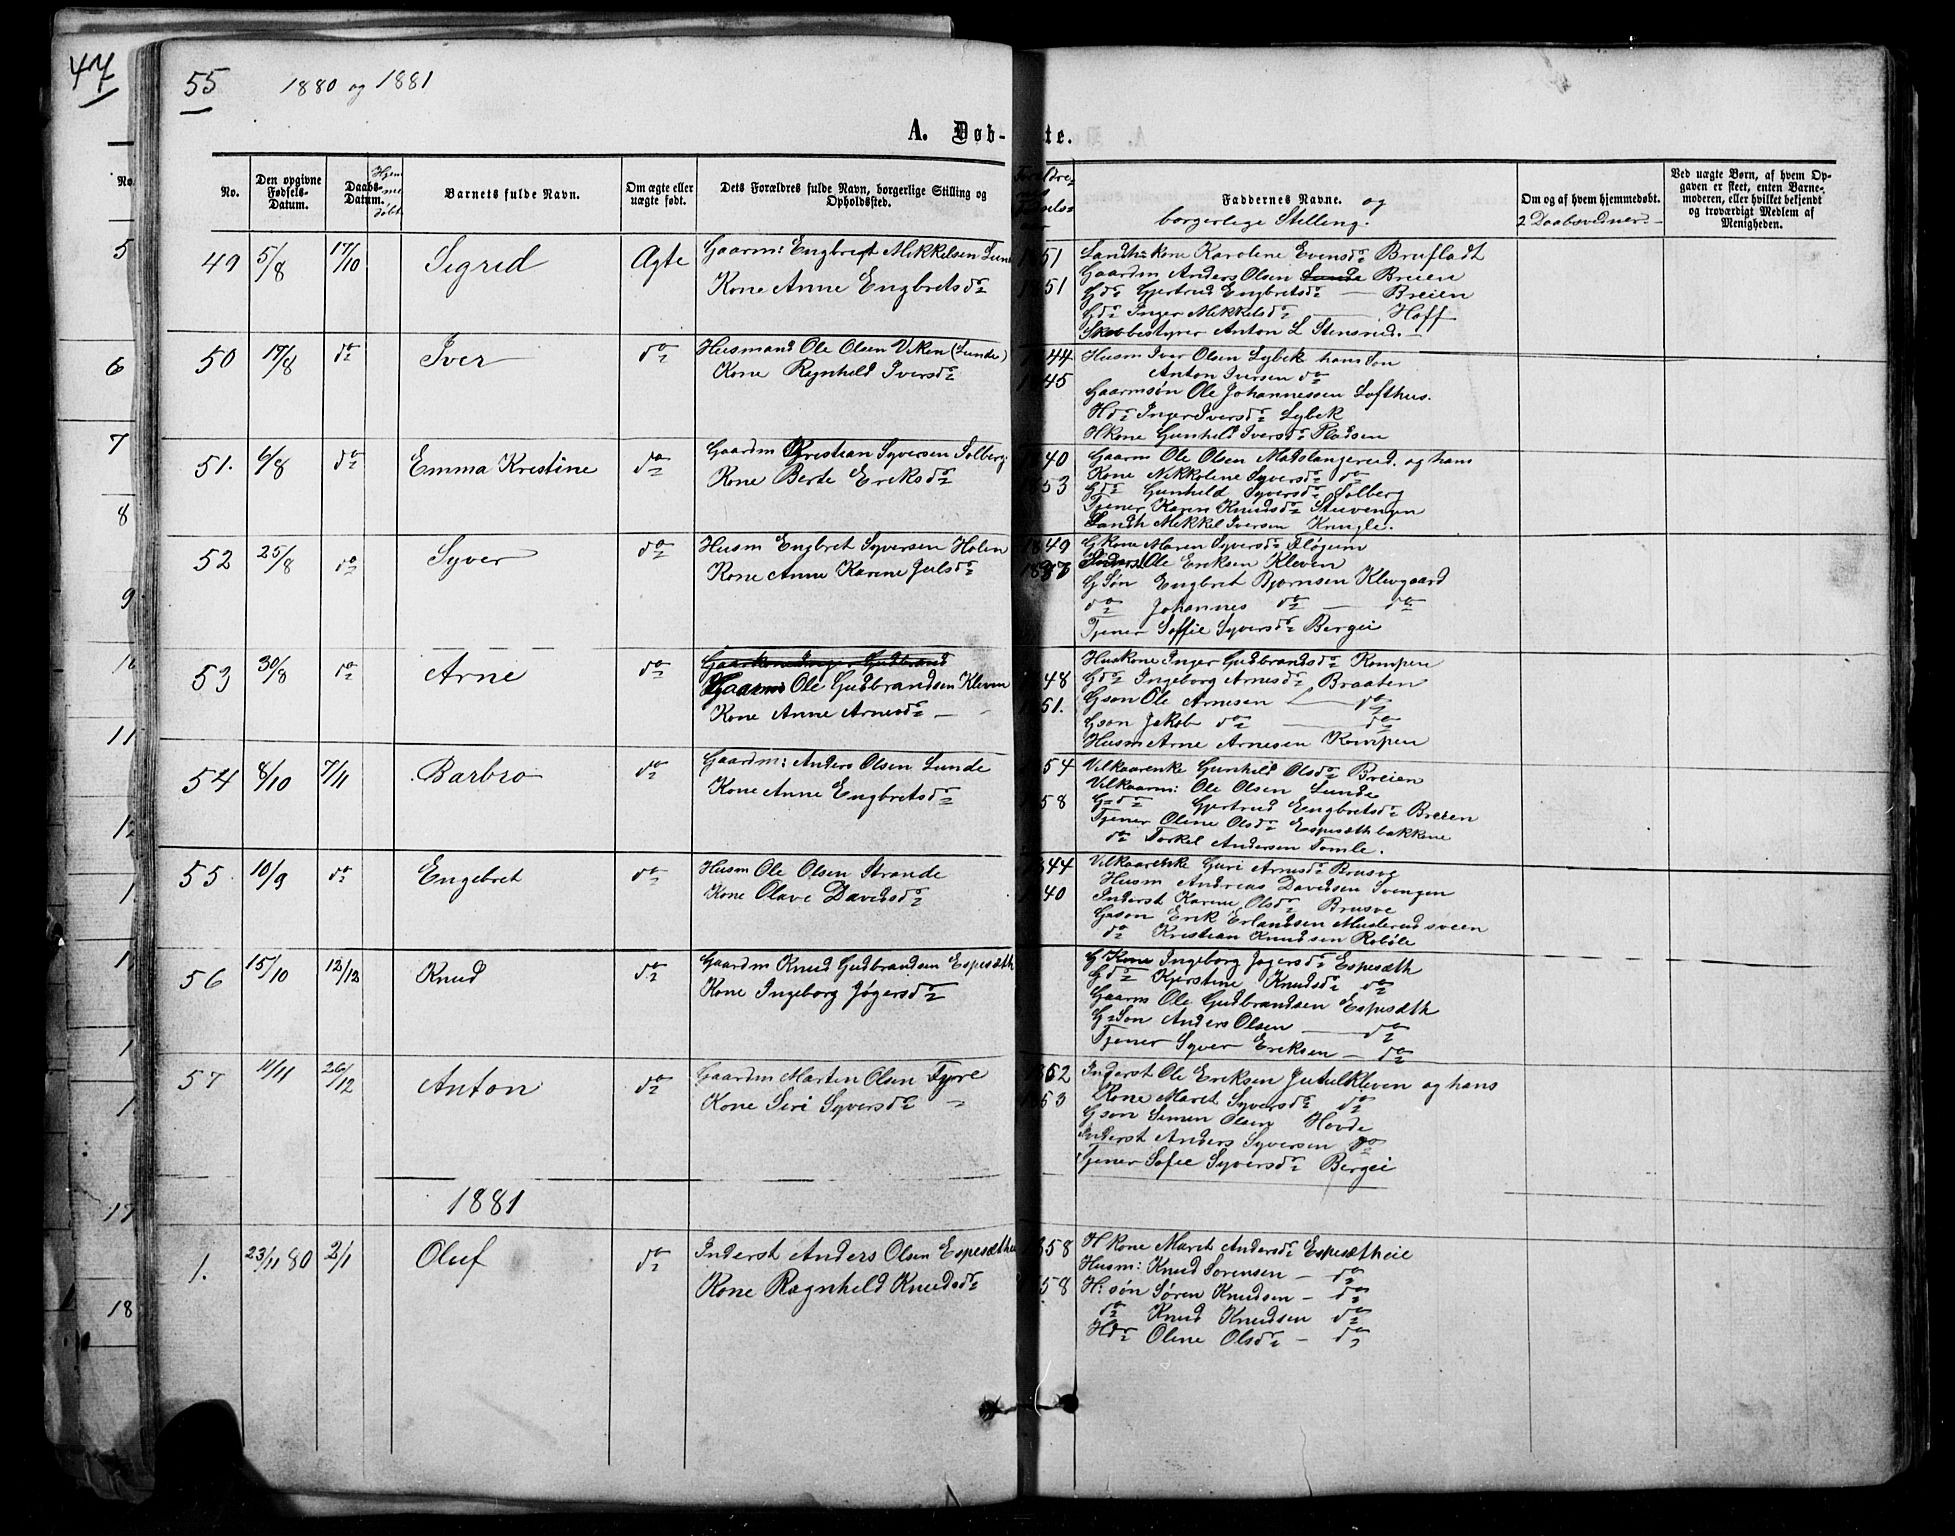 47
55
1880 og 1881
A. Døb-
te.
No.
Den opgivne Fødsels-Datum.
Daabs-Datum.
Hjem-
me
døbt
Barnets fulde Navn.
Om ægte eller uægte født.
Dets Forældres fulde Navn, borgerlige Stilling og Opholdssted.
Faddernes Navne. og
borgerlige Stelling.
Om og af hvem hjemmedøbt.
2 Daabsvidner.
Ved uægte Børn, af hvem Op-
gaven er skeet, enten Barne-
moderen, eller hvilket bekjendt
og troværdigt Medlem af
Menigheden.
49 5/8 17/10 Sigrid Ægte
Gaarm: Engbret Mikkelsen Lunde
Kone Anne Engbretsdr
51
51
Landh: kone Karoline Evensdr Brufladt
Gaardm Anders Olsen Lunde Breien
Gdr Gjertrud Engbretsdr — Breien
Gdr Inger Mikkelsdr — Hoff
Skovbestyrer Anton L Stensrud
50 17/8 do Iver do
Husmand Ole Olsen Viken (Lunde)
Kone Ragnhild Iversdr
44
45
Husm Iver Olsen Lybek hans Søn
Anton Iversen do
Gaarmsøn Ole Johannessen Lofthus.
Hdr Inger Iversdr Lybek
HKone Gunhild Iversdr Pladsen
51. 6/8 do Emma Kristine do
Gaardm Kristian Syversen Solberg
Kone Berte Eriksdr
40
53
Gaarm Ole Olsen Madslangerud. og hans
Kone Nikkoline Syversdr do
Gdr Gunhild Syversdr Solberg
Tjener Karen Knudsdr Stuvengen
Landh Mikkel Iversen Kringle.
52 25/8 do Syver do
Husm Engbret Syversen Holen
Kone Anne Karine Julsdr
1849
Gkone Maren Syversdr
Inderst Ole Eriksen Kleven
GSøn Engbret Bjørnsen Klevgaard
do Johannes do — do
Tjener Soffie Syversdr Bergei
53 30/8 do Arne do
Gaarkone Inger Gudbrand
Gaarm Ole Gudbrandsen Kleven
Kone Anne Arnesdr —
48
51.
Huskone Inger Gudbrandsdr Kompen
Gdr Ingeborg Arnesdr Braaten
Gson Ole Arnesen — do
Gson Jakob do — do
Husm Arne Arnesen Kompen
54 8/10 7/11 Barbro do
Gaardm: Anders Olsen Lunde
Kone Anne Engbretsdr
54
58
Vilkaarenke Gunhild Olsdr Breien
Vilkaarm: Ole Olsen Lunde
Gdr Gjertrud Engbretsdr Breien
Tjener Oline Olsdr Espesæthbakkene
do Torkel Andersen Tomle.
55 10/9 do Engebret do
Husm Ole Olsen Strande
Kone Olave Davidsdr
44
40
Vilkaarenke Guri Arnesdr Brusve
Husm Andreas Davidsen Svengen
Inderst Karine Olsdr Brusve
Gson Erik Erlandsen Musterudsveen
do Kristian Knudsen Robøle
56 15/10 12/12 Knud do
Gaardm Knud Gudbrandsen Espesæth
Kone Ingeborg Jøgersdr
GKone Ingeborg Jøgersdr Espesæth
Gdr Kjerstine Knudsdr do
Gaarm Ole Gudbrandsen Espesæth
G=Søn Anders Olsen — do
Tjener Syver Eriksen — do
57 11/11 26/12 Anton do
Gaardm Marten Olsen Fyrre
Kone Siri Syversdr
52
53
Inderst Ole Eriksen Jutulkleven og hans
Kone Maret Syversdr do
Gson Simen Olsen Hovde
Inderst Anders Syversen do
Tjener Sofie Syversdr Bergei
1881
1. 23/11 80 2/1 Oluf do
Inderst Anders Olsen Espesætheie
Kone Ragnhild Knudsdr
58
58
H Kone Maret Andersdr Espesætheie
Husm: Knud Sørensen — do
H: søn Søren Knudsen — do
do Knud Knudsen do
Hdr Oline Olsdr — do
5
6
7
8
9
10
11
12
17
18